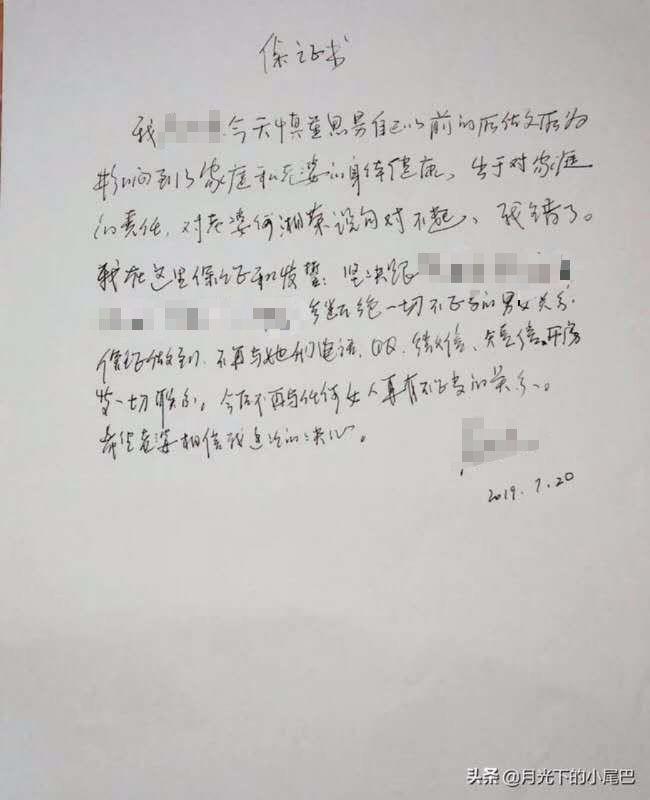 保证书
我 今天慎重思易自己以前的所做文所为
影响到了家庭和老婆的身体健康、出于对家庭
的责任，对老婆何湘 说句对不起、我错了。
我在这里保证和发誓：坚决跟
断绝一切不正当的男女关系.
保证做到，不再与她们电话、QQ、微信、短信、开房
发一切联系，今后不再与任何女人再有不正当的关系、
希望老婆相信我这次的决心。
2019.7.20
头条 @月光下的小尾巴